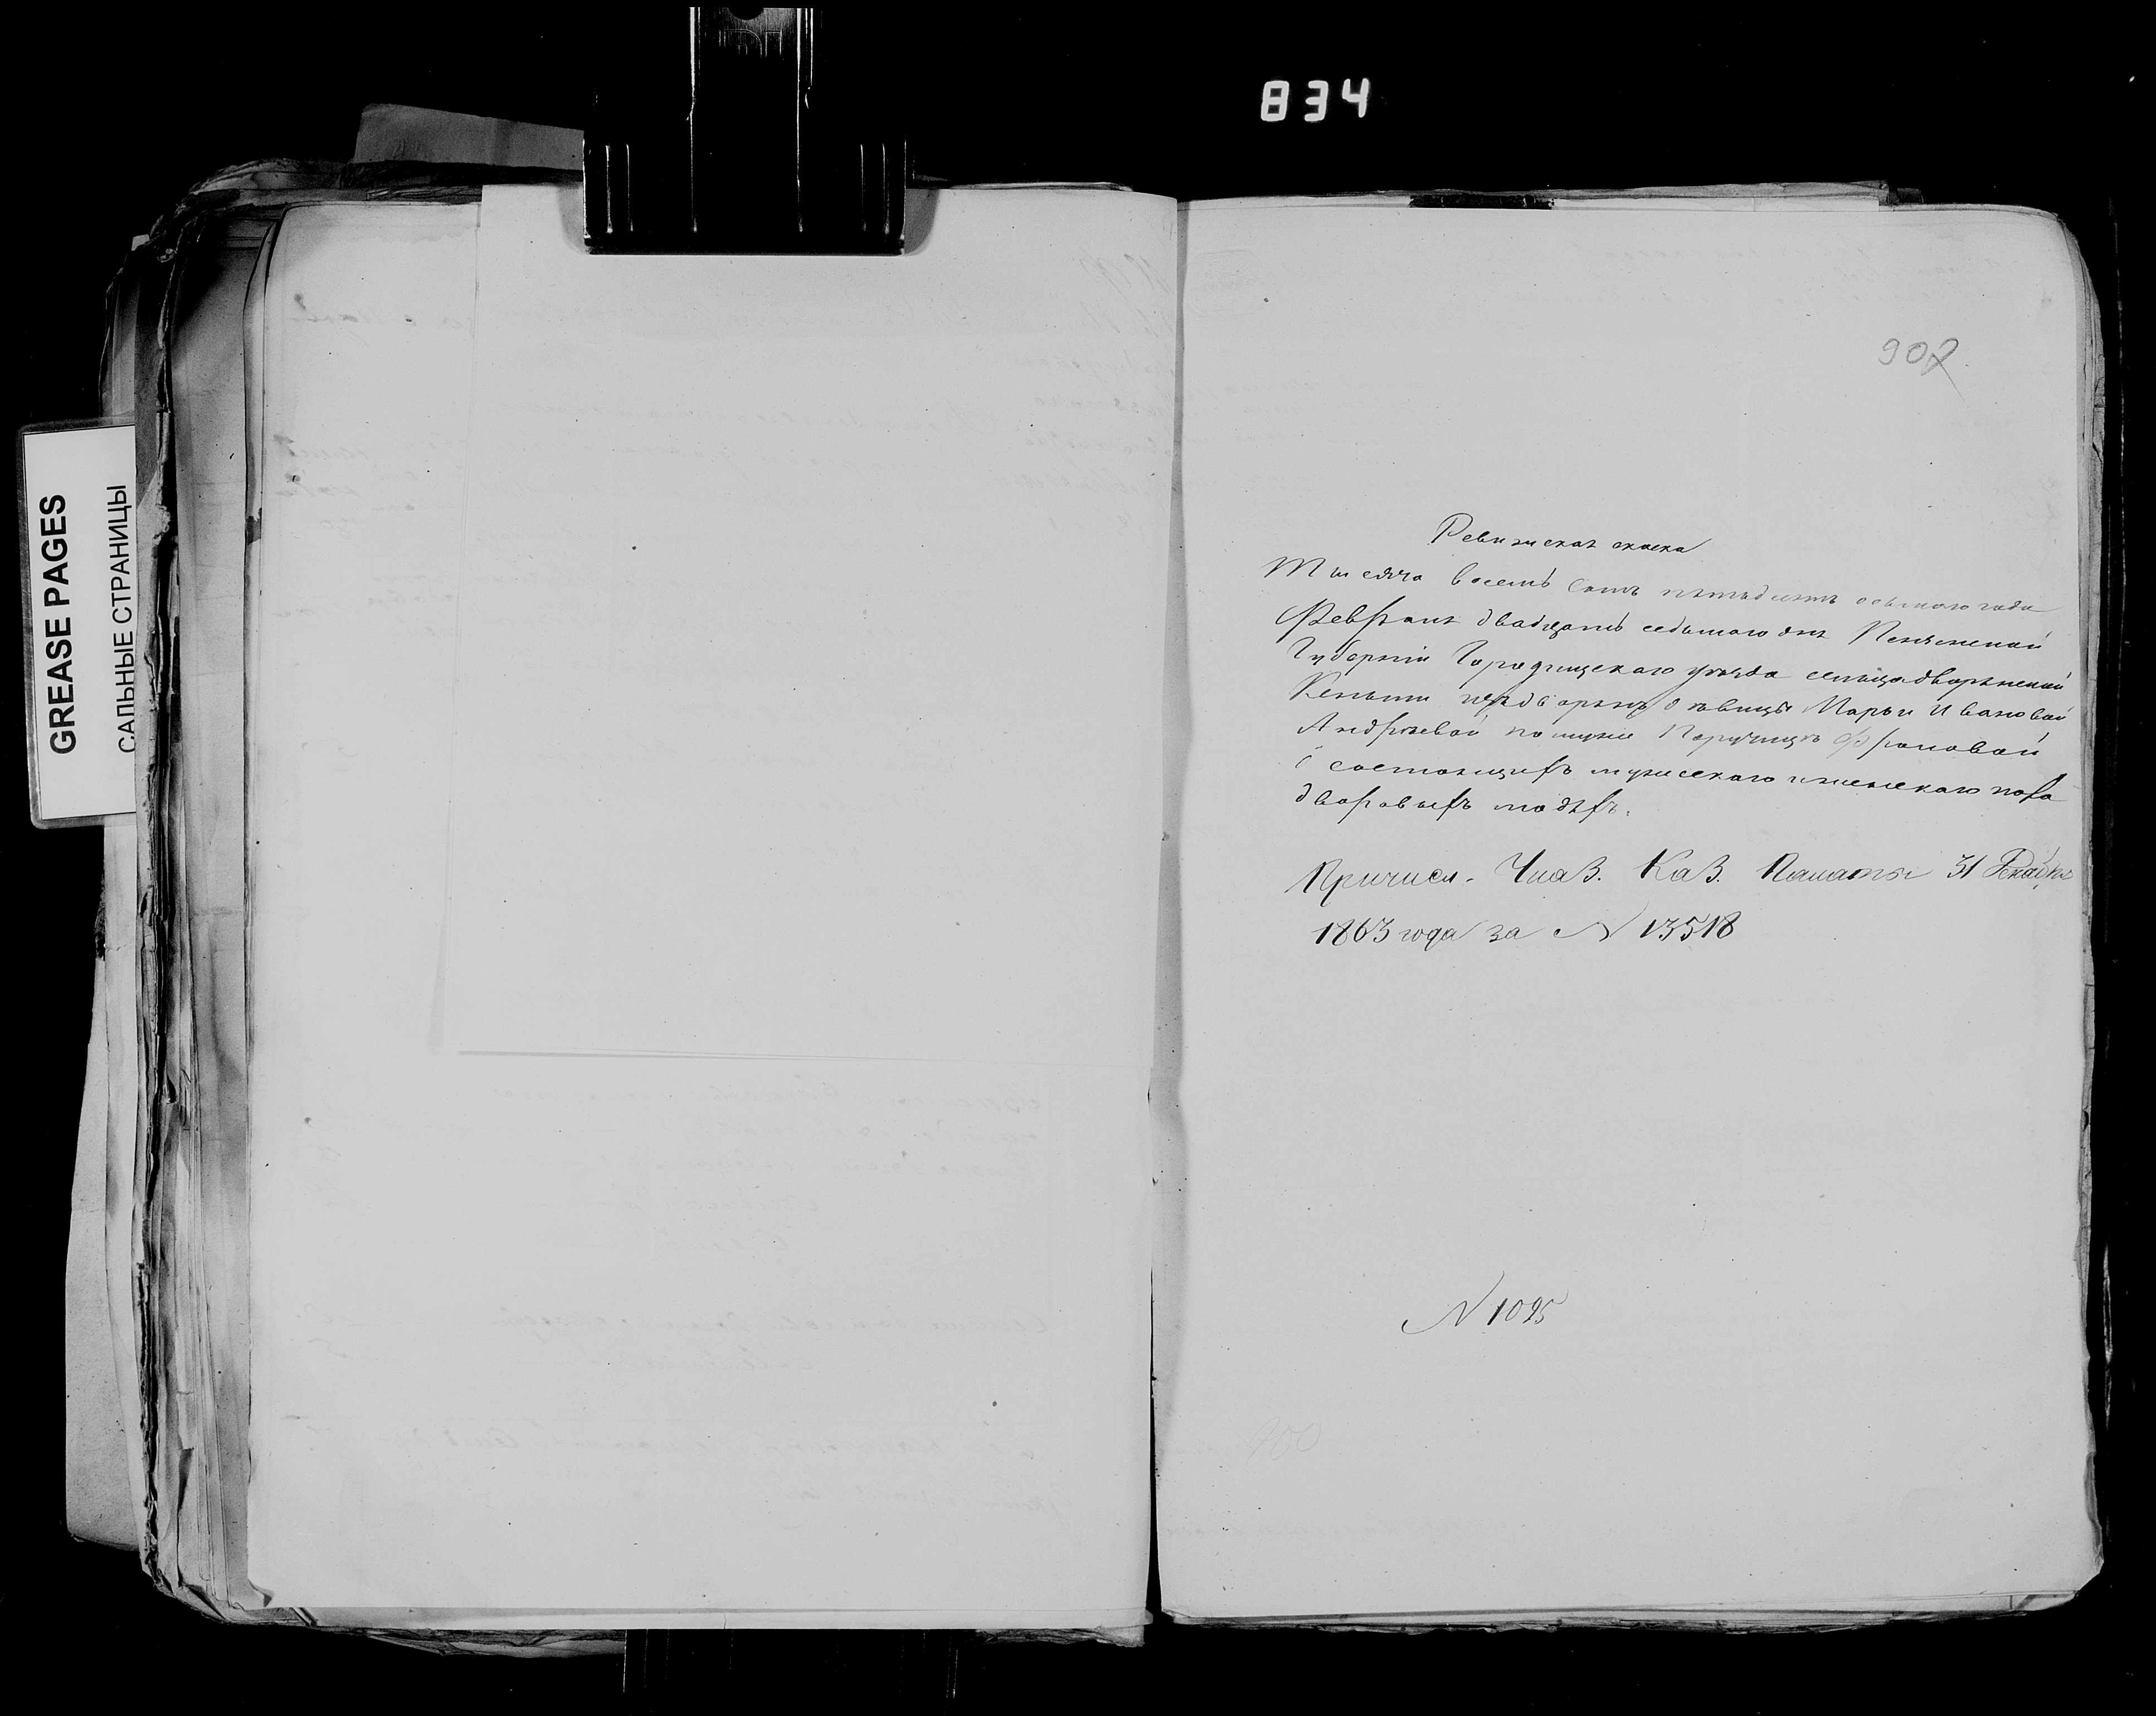 834
GREASE PAGES
САЛЬНЫЕ СТРАНИЦЫ
907
Ревизская скаска
Тысяча восемь сотъ пятьдесятъ осьмого года
Февраля двадцать седьмого дня Пензенской
Губерніи Городищскаго уѣзда сельца дворянской
Кеньши Марьи Ивановой
Андрѣевой по мужѣ Поручицъ Фроловой
состоящихъ мужескаго и женскаго пола
дворовыхъ людѣхъ.
Причисл. Указ. Каз. Палаты 31 Декабря
1863 года за N 13518
N 1095
900